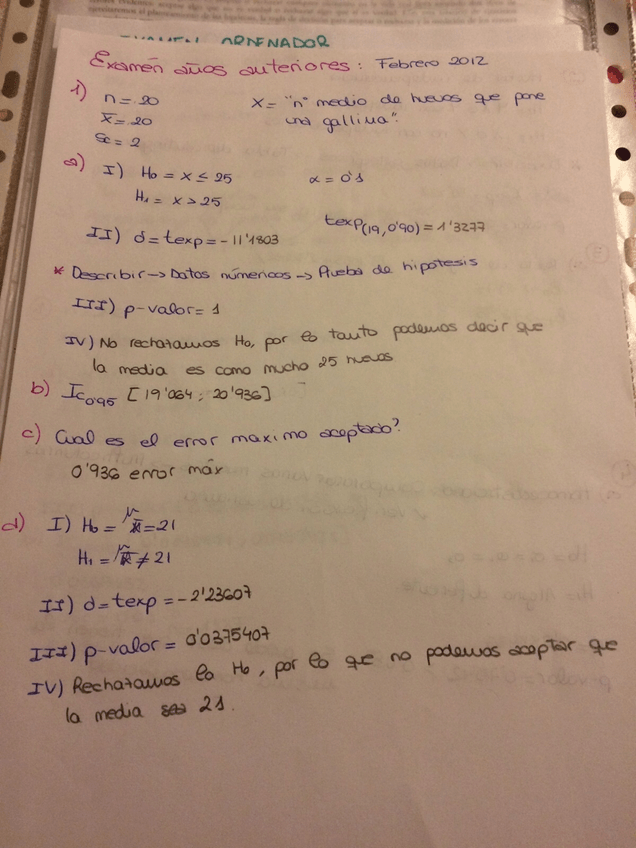 EXAMEN ORDENADOR
Examén años anteriores: Febrero 2012
1) n = 20
X = "nº medio de huevos que pone
una gallina".
x̄ = 20
Sc = 2
a) I) H₀ = x ≤ 25
α = 0'1
H₁ = x > 25
texp(19, 0'90) = 1'3277
II) d = texp = -11'1803
* Describir → Datos númericos → Prueba de hipotesis
III) p-valor = 1
IV) No rechazamos H₀, por lo tanto podemos decir que
la media es como mucho 25 huevos
b) Ic₀'₉₅ [19'064 ; 20'936]
c) Cual es el error maximo aceptado?
0'936 error máx
d) I) H₀ = μ = 21
H₁ = μ ≠ 21
II) d = texp = -2'23607
III) p-valor = 0'0375407
IV) Rechazamos lo H₀, por lo que no podemos aceptar que
la media sea 21.